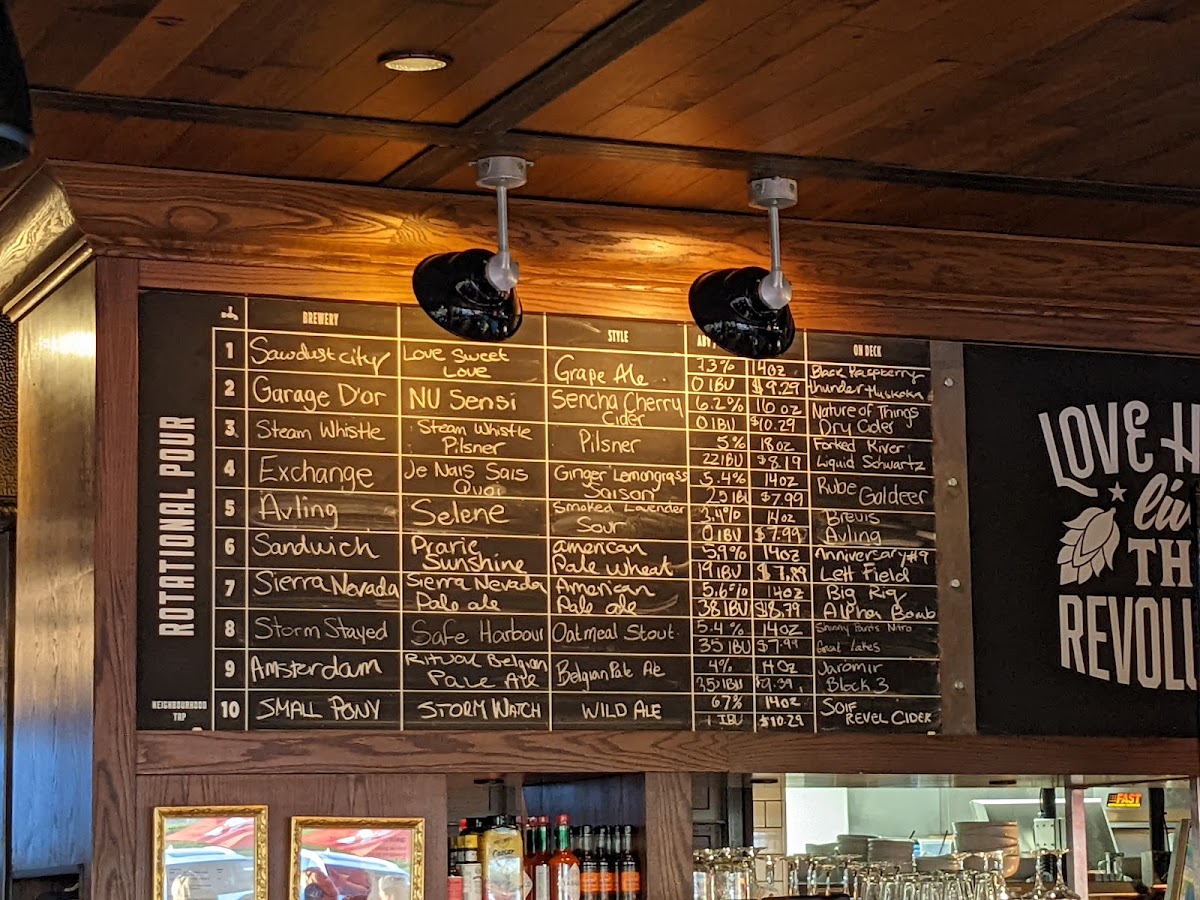 BREWERY STYLE ON DECK
ROTATIONAL POUR
1 Sawdust city Love Sweet Love Grape Ale 7.3% 14oz 0 IBU $9.29 Black Raspberry thunder Muskoka
2 Garage D'or NU Sensi Sencha Cherry Cider 6.2% 16 oz 0 IBU $10.29 Nature of Things Dry Cider
3 Steam Whistle Steam Whistle Pilsner Pilsner 5% 18oz 22 IBU $8.19 Forked River Liquid Schwartz
4 Exchange Je Nais Sais Quoi Ginger Lemongrass Saison 5.4% 14oz 25 IBU $7.99 Rube Goldeer
5 Avling Selene Smoked Lavender Sour 3.4% 14oz 0 IBU $7.99 Brevis Avling
6 Sandwich Prarie Sunshine american Pale wheat 5.9% 14oz 19 IBU $7.89 Anniversary #9 Left Field
7 Sierra Nevada Sierra Nevada Pale ale American Pale ale 5.6% 14oz 38 IBU $8.79 Big Rig Alpha Bomb
8 Storm Stayed Safe Harbour Oatmeal Stout 5.4% 14oz 35 IBU $7.99 Nitro Great Lakes
9 Amsterdam Ritual Belgian Pale Ale Belgian Pale Ale 4% 14oz 25 IBU $9.39 Jaromir Block 3
10 SMALL PONY STORM WATCH WILD ALE 67% 14oz 1 IBU $10.29 SOIF REVEL CIDER
NEIGHBOURHOOD
TAP
LOVE H
liv
TH
REVOLU
FAST